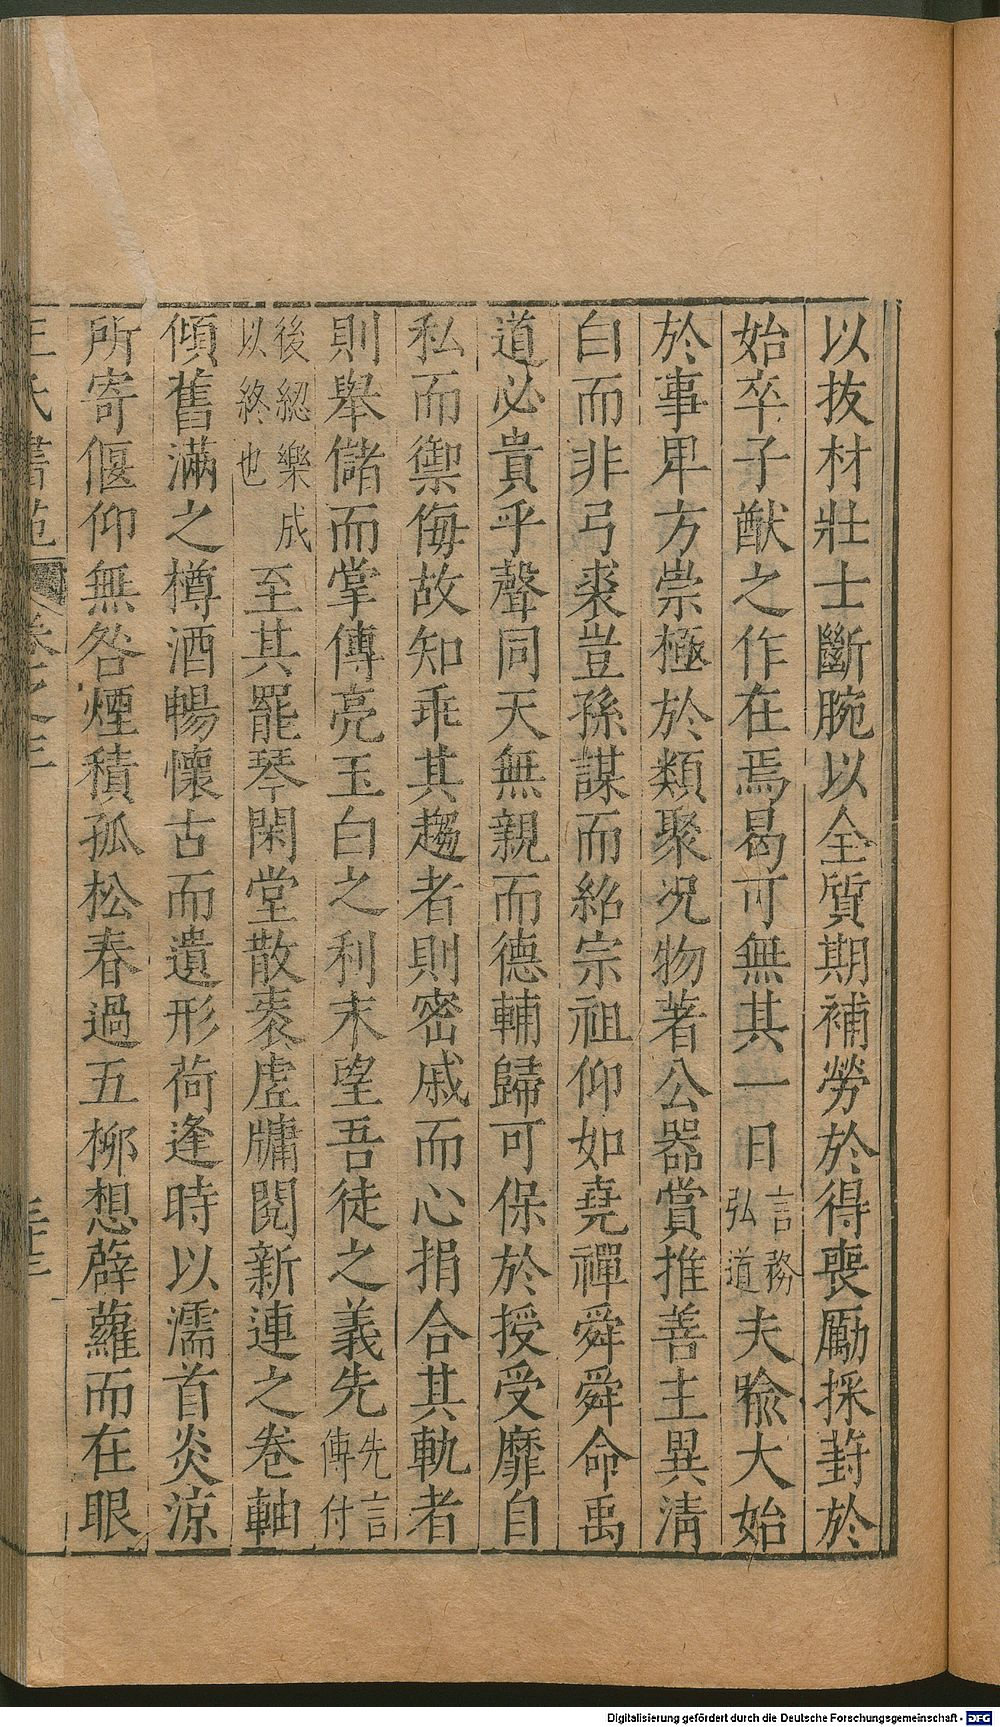 以技材壯士斷腕以全質期補勞於得喪勵採葑於
始卒子猷之作在焉曷可無其一日言務弘道夫喩大始
於事卑方崇極於類聚况物著公器賞推善主異清
白而非弓裘豈孫謀而紹宗祖仰如堯禪舜舜命禹
道必貴乎聲同天無親而德輔歸可保於授受靡自
私而禦侮故知乖其趨者則密戚而心捐合其軌者
則舉儲而掌傳亮玉白之利末望吾徒之義先先言傳付
後認樂成以終也至其罷琴閑堂散袠虛牖閱新連之卷軸
傾舊滿之樽酒暢懷古而遺形荷逢時以濡首炎涼
所寄偃仰無咎煙積孤松春過五栁想薜蘿而在眼
王氏書苑 卷之三
Digitalisierung gefördert durch die Deutsche Forschungsgemeinschaft - DFG